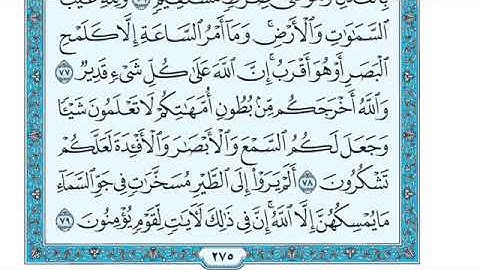 صِرَٰطٍ مُّسْتَقِيمٍ ٧٦ وَلِلَّهِ غَيْبُ
ٱلسَّمَٰوَٰتِ وَٱلْأَرْضِۚ وَمَآ أَمْرُ ٱلسَّاعَةِ إِلَّا كَلَمْحِ
ٱلْبَصَرِ أَوْ هُوَ أَقْرَبُۚ إِنَّ ٱللَّهَ عَلَىٰ كُلِّ شَىْءٍ قَدِيرٌ ٧٧
وَٱللَّهُ أَخْرَجَكُم مِّنۢ بُطُونِ أُمَّهَٰتِكُمْ لَا تَعْلَمُونَ شَيْـًٔا
وَجَعَلَ لَكُمُ ٱلسَّمْعَ وَٱلْأَبْصَٰرَ وَٱلْأَفْـِٔدَةَ لَعَلَّكُمْ
تَشْكُرُونَ ٧٨ أَلَمْ يَرَوْا۟ إِلَى ٱلطَّيْرِ مُسَخَّرَٰتٍ فِى جَوِّ ٱلسَّمَآءِ
مَا يُمْسِكُهُنَّ إِلَّا ٱللَّهُۚ إِنَّ فِى ذَٰلِكَ لَءَايَٰتٍ لِّقَوْمٍ يُؤْمِنُونَ ٧٩
٢٧٥